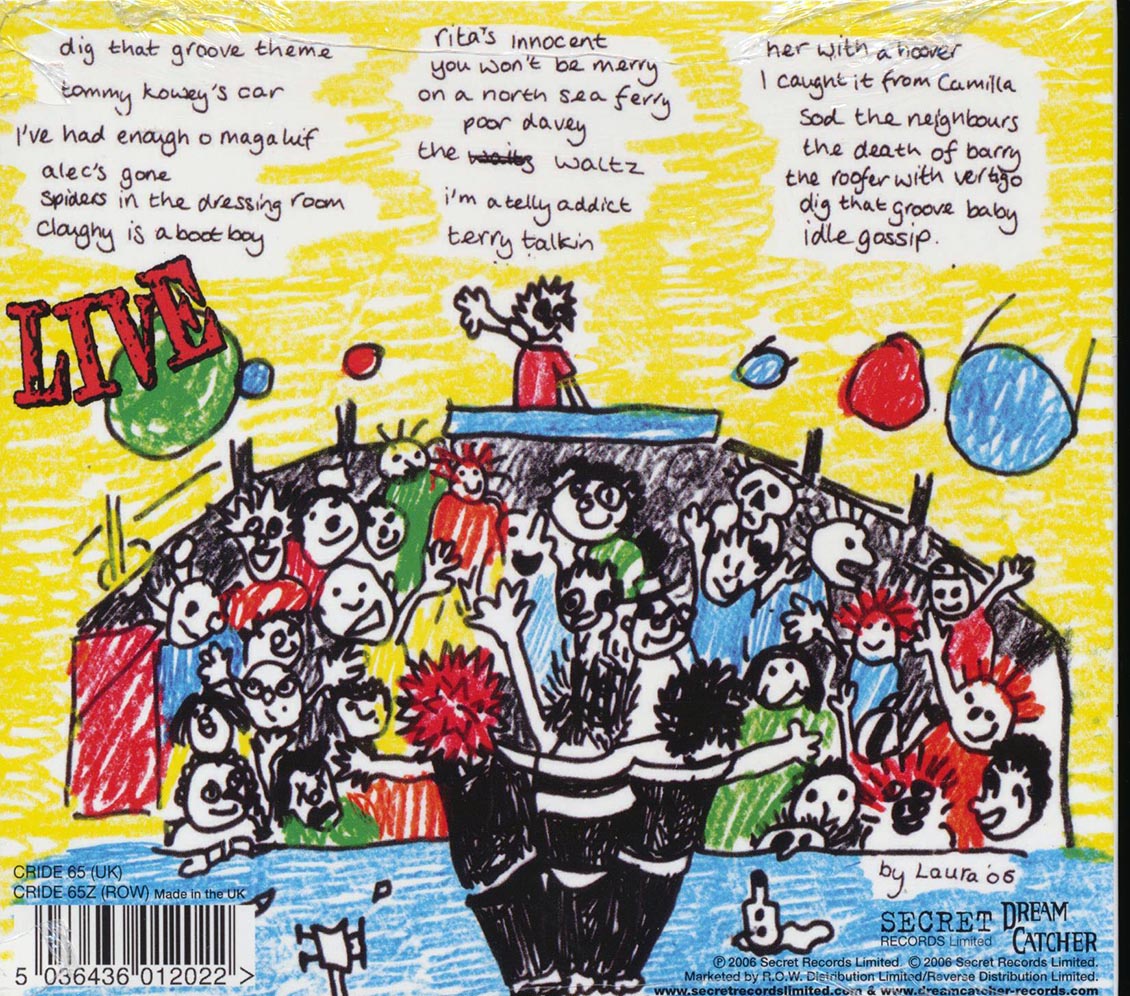 dig that groove theme
tommy kowey's car
I've had enough o magaluf
alec's gone
spiders in the dressing room
cloughy is a boot boy
rita's innocent
you won't be merry
on a north sea ferry
poor davey
the waltz
i'm a telly addict
terry talkin
her with a hoover
I caught it from Camilla
Sod the neighbours
the death of barry
the roofer with vertigo
dig that groove baby
idle gossip.
LIVE
by Laura '06
CRIDE 65 (UK)
CRIDE 65Z (ROW) Made in the UK
5 036436 012022 >
SECRET
RECORDS Limited
DREAM
CATCHER
℗ 2006 Secret Records Limited. © 2006 Secret Records Limited.
Marketed by R.O.W. Distribution Limited/Reverse Distribution Limited.
www.secretrecordslimited.com & www.dreamcatcher-records.com